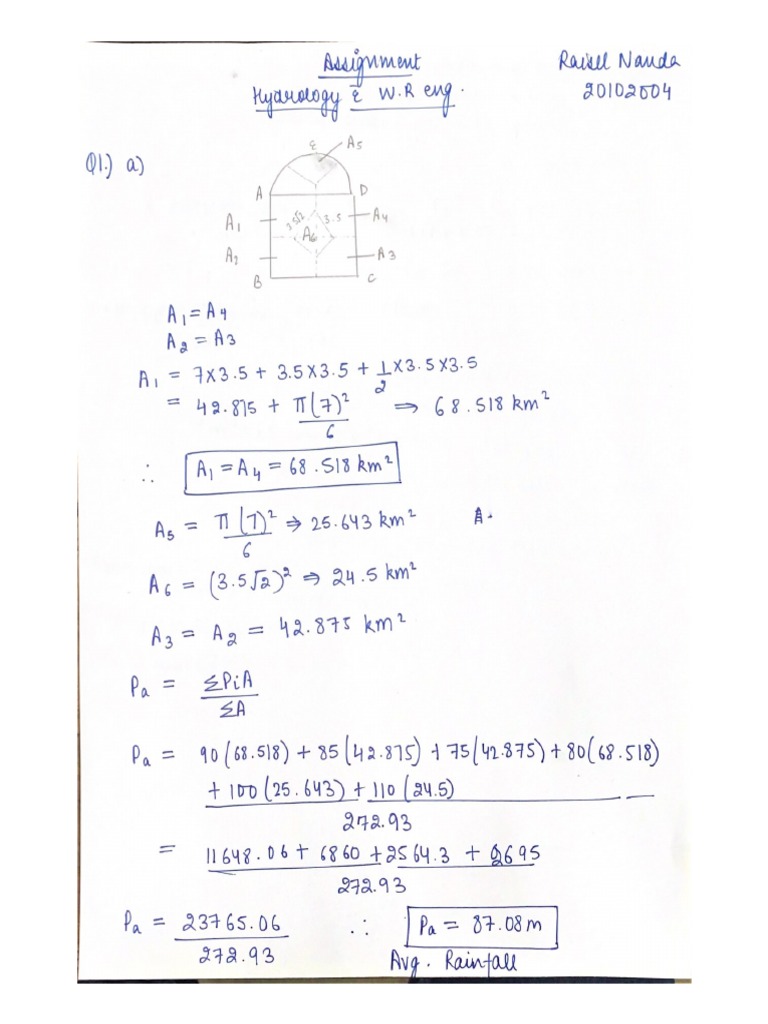 Assignment
Raisel Nanda
Hydrology & W.R eng.
20102004
Q1.) a)
E
A5
A
D
A1
3.5√2
3.5
A4
A6
A2
A3
B
C
A1 = A4
A2 = A3
A1 = 7x3.5 + 3.5x3.5 + 1/2 x3.5x3.5
= 42.875 + π(7)²/6 ⇒ 68.518 km²
∴ A1 = A4 = 68.518 km²
A5 = π(7)²/6 ⇒ 25.643 km²
A.
A6 = (3.5√2)² ⇒ 24.5 km²
A3 = A2 = 42.875 km²
Pa = ΣPiA/ΣA
Pa = 90(68.518) + 85(42.875) + 75(42.875) + 80(68.518)
+ 100(25.643) + 110(24.5)
272.93
= 11648.06 + 6860 + 2564.3 + 2695
272.93
Pa = 23765.06/272.93 ∴ Pa = 87.08m
Avg. Rainfall